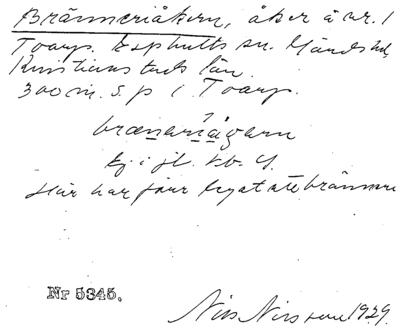 Bränneriåkern, åker å nr. 1
Toarp. Esphults sn. Gärds hd,
Kristianstads län.
300 m. S. p i Toarp.
brænəriågərn
Här har förr legat ett bränneri
Nr 5345.
Nils Nilsson 1929.